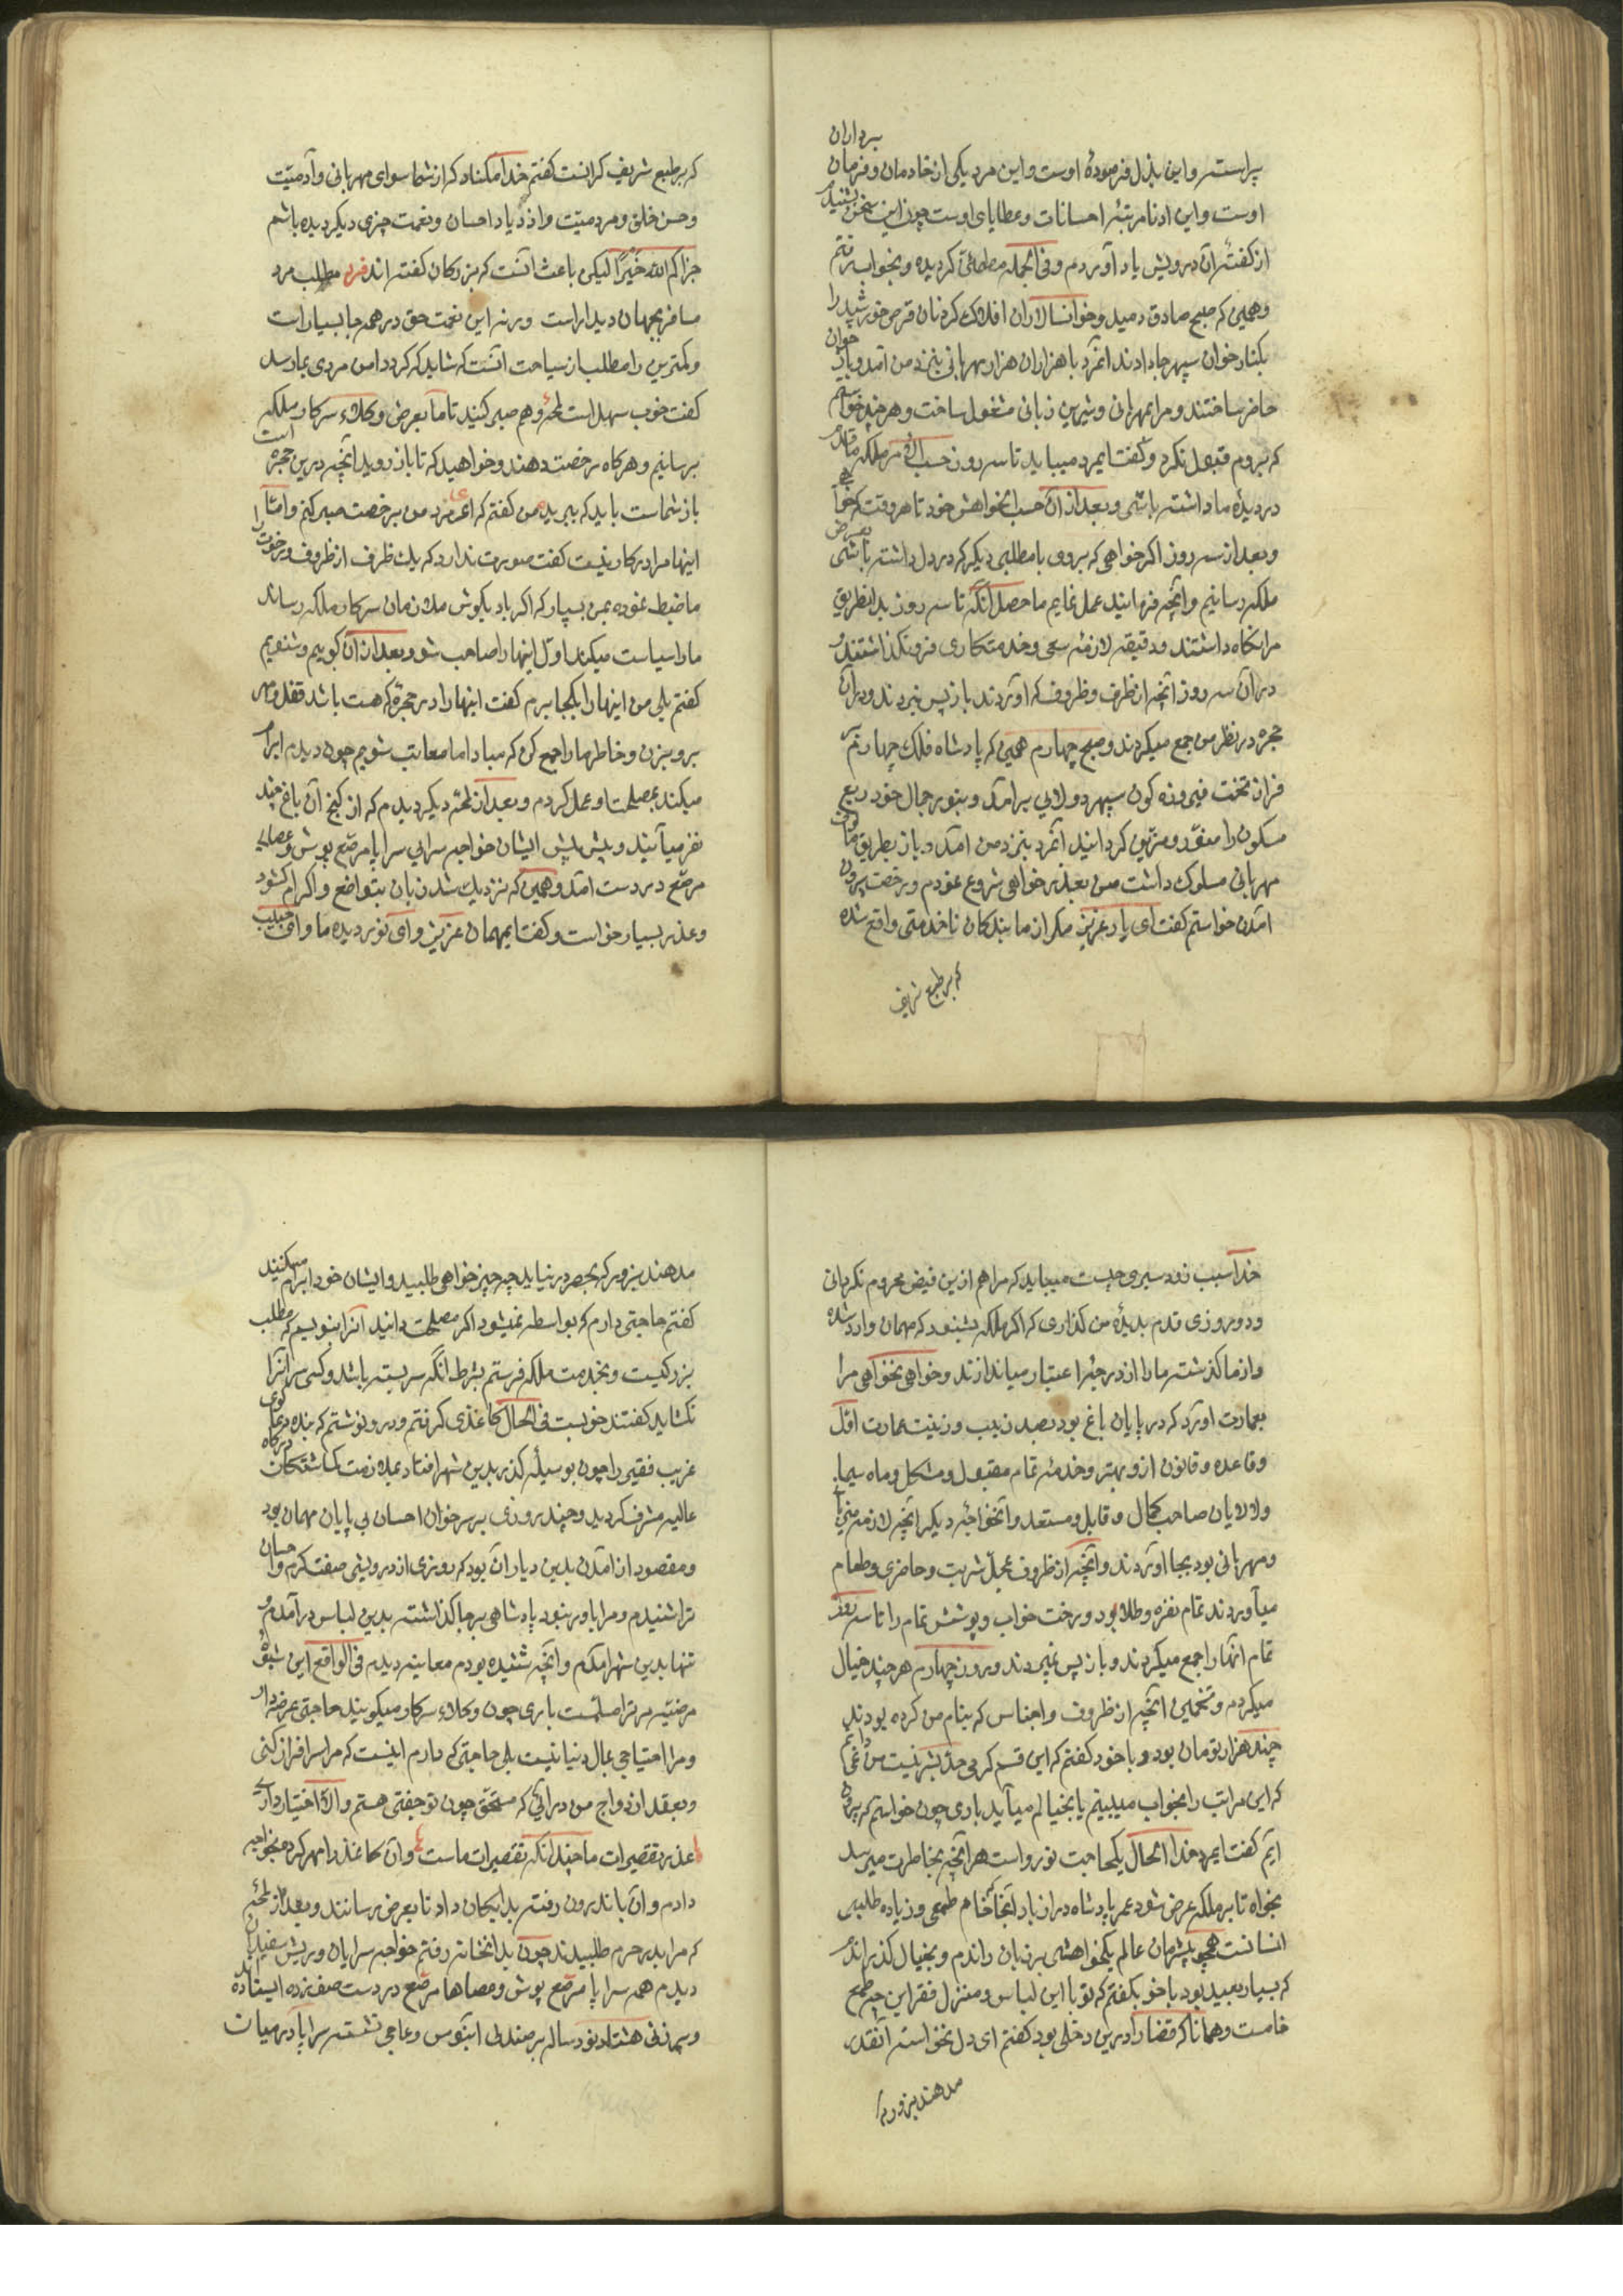 پرداران
پراست و این بذل فرموده اوست و این مرد یکی از خادمان و فرمان
اوست و این ادنا مرتبهٔ احسانات و عطایای اوست چون این سخن بشنیدم
از گفتهٔ آن درویش یاد آوردم و فی الجمله مطمئن گردیده و بخواب رفتم
و همین که صبح صادق دمید و خوانسالاران افلاک گرد نان قرص خورشید را
بکنار خوان سپهر جا دادند آنمرد با هزاران هزار مهربانی بنزد من آمد و باز خوان
حاضر ساختند و مرا بمهربانی و شیرین زبانی مشغول ساخت و هر چند خواستم
که بروم قبول نکرد و گفت ایمرد میباید تا سه روز حسب الامر ملکه قدم
در دیدهٔ ما داشته باشی و بعد از آن حسب الخواهش خود تا هر وقت که خواهی
و بعد از سه روز اگر خواهی که بروی یا مطلبی دیگر که در دل داشته باشی بعرض
ملکه رسانیم و آنچه فرمایند عمل نمایم ماحصل آنکه تا سه روز بدانطریق
مرا نگاه داشتند و دقیقهٔ لازمهٔ سعی و خدمتکاری فرو نگذاشتند و
در آن سه روز آنچه از ظرف و ظروف که آوردند باز پس نبردند و در آن
حجره در نظر من جمع میکردند و صبح چهارم همین که پادشاه فلک چهارم
فراز تخت فیروزه گون سپهر دولابی برآمد و بنور جمال خود ربع
مسکون را منور و مزین گردانید آنمرد بنزد من آمد و باز بطریق
مهربانی مسلوک داشت من بعذر خواهی شروع نمودم و رخصت بیرون
آمدن خواستم گفت ای یار عزیز مگر از ما بندگان ناخدمتی واقع شده
که بر طبع شریف
که بر طبع شریف گرانست گفتم خدا مکناد که از شما سوای مهربانی و آدمیّت
و حسن خلق و مردمیّت و ازدیاد احسان و نعمت چیزی دیگر دیده باشم
جزاکم الله خیرًا لیکن باعث آنست که بزرگان گفته اند فرد مطلب مرد
مسافر بجهان دیدار است ورنه این نعمت حق در همه جا بسیار است
و کمترین را مطلب از سیاحت آنست که شاید که گرد دامن مردی بما رسد
گفت خوب سهل است لمحهٔ و هم صبر کنید تا ما بعرض وکلاء سرکار ملکه
برسانیم و هرگاه رخصت دهند و خواهید که تا باز روید آنچه درین حجره است
باز شماست باید که ببرید من گفتم که ای مرد من بی رخصت صبر کنم و امّا
اینها مرا در کار نیست گفت صورت ندارد که یک ظرف از ظروف و رخوت را
ما ضبط نموده بمن بسپار که اگر باد بگوش ملازمان سرکار ملکه رساند
ما را سیاست میکند اوّل اینها را صاحب شو و بعد از آن گوییم و شنویم
گفتم بلی من اینها را بکجا برم گفت اینها را در حجرهٔ که هست باشد قفل و مهر
برو بزن و خاطر ما را جمع کن که مبادا ما معاتب شویم چون دیدم ابرام
میکند بمصلحت او عمل کردم و بعد از لمحهٔ دیگر دیدم که از کنج آن باغ چند
نفر میآیند و پیش پیش ایشان خواجه سرایی سراپا مرصّع پوش و عصای
مرصّع در دست آمد و همین که نزدیک شد زبان بتواضع و اکرام گشود
و عذر بسیار خواست و گفت ایمهمان عزیز و ای نور دیدهٔ ما وای حبیب
خدا سبب زود سیری چیست میباید که مرا هم ازین فیض محروم نگردانی
و دو روزی قدم بدیدهٔ من گذاری که اگر ملکه بشنود که مهمان وارد شده
و از ما گذشته ما را از درجهٔ اعتبار میاندازند و خواهی نخواهی مرا
بعمارت آورد که در پایان باغ بود بصد زیب و زینت عمارت اوّل
و قاعده و قانون ازو بهتر و خدمه تمام مقبول و مشکل و ماه سیما
و لالایان صاحب کمال و قابل و مستعد و آنخواجه دیگر آنچه لازمه میزبانی
و مهربانی بود بجا آوردند و آنچه از ظروف محل شربت و حاضری و طعام
میآوردند تمام نقره و طلا بود و رخت خواب و پوشش تمام را تا سه روز
تمام آنها را جمع میکردند و باز پس نمیبردند و روز چهارم هر چند خیال
میکردم و تخمین آنچه از ظروف و اجناس که بنام من کرده بودند
چند هزار تومان بود و با خود گفتم که این قسم کرمی حدّ بشر نیست من نمیدانم
که این مراتب را بخواب میبینم یا بخیالم میآید باری چون خواستم که بیرون
آیم گفت ایمرد خدا الحال یکحاجت تو رواست هر آنچه بخاطرت میرسد
بخواه تا بر ملکه عرض شود عمر پادشاه دراز باد از آنجا که خام طمعی و زیاده طلبی
انسانست همچو بیشرمان عالم یکخواهشی بر زبان راندم و بخیال گذراندم
که بسیار بعید بود با خود بگفتم که تو با این لباس و منزل فقر این چه طمع
خامست و همانا که قضا را درین دخلی بود گفتم ای دل نخواسته آنقدر
مدهند بزور که
مدهند بزور که بحصر در نیاید چه چیز خواهی طلبید و ایشان خود ابرام میکنند
گفتم حاجتی دارم که بواسطه نمیشود اگر مصلحت دانید آنرا بنویسم که مطلب
بزرگیست و بخدمت ملکه فرستم بشرط آنکه سربسته باشد و کسی سر آنرا
نگشاید گفتند خوبست فی الحال کاغذی گرفتم و درو نوشتم که بنده دعا گوی
غریب فقیر را چون بوسیلهٔ گذر بدین شهر افتاد بملازمت گماشتگان درگاه
عالیه مشرف گردید و چند روزی بر سر خوان احسان بی پایان مهمان بود
و مقصود از آمدن بدین دیار آن بود که روزی از درویشی صفت کرم و احسان
ترا شنیدم و مرا باور نبود پادشاهی بر جا گذاشته بدین لباس درآمدم و
تنها بدین شهر آمدم و آنچه شنیده بودم معاینه دیدم فی الواقع این شیوهٔ
مرضیّه مر ترا مسلّمست باری چون وکلاء سرکار میگویند حاجتی عرض دار
و مرا احتیاجی بمال دنیا نیست بلی حاجتی که دارم اینست که مرا سرافراز کنی
و بعقد ازدواج من درآئی که مستحقّ چون تو جفتی هستم و الّا اختیار داری
عذر تقصیرات ما چندانکه تقصیرات ماست و آن کاغذ را مهر کرده بخواجه
دادم و آن باندرون رفته بدایگان داد تا بعرض رسانند و بعد از لمحهٔ
که مرا بدر حرم طلبیدند چون بدانخانه رفتم خواجه سرایان و ریش سفیدان
دیدم همه سراپا مرصّع پوش و عصاها مرصّع در دست صف زده ایستاده اند
و پیرزنی هشتاد نود ساله بر صندلی آبنوس و عاجی نشسته سراپا در میان